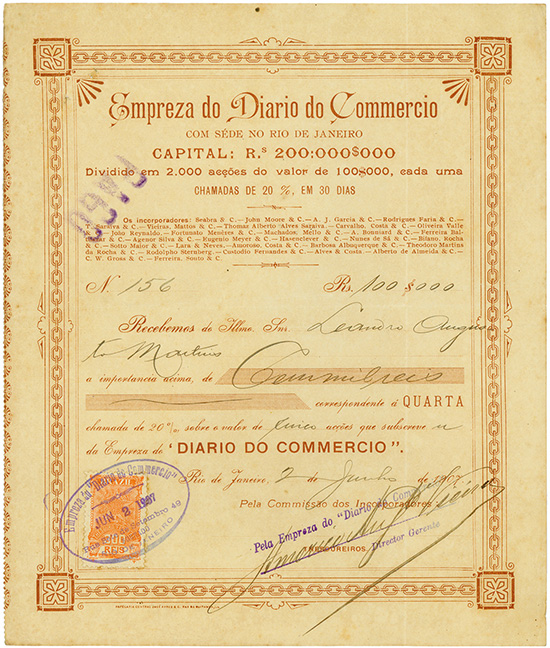 Empreza do Diario do Commercio
COM SÉDE NO RIO DE JANEIRO
CAPITAL: R.s 200:000$000
Dividido em 2.000 acções do valor de 100$000, cada uma
CHAMADAS DE 20 %, EM 30 DIAS
Os incorporadores: Seabra & C.— John Moore & C.— A. J. Garcia & C.— Rodrigues Faria & C.—
T. Saraiva & C.— Vieiras, Mattos & C.— Thomaz Alberto Alves Saraiva.— Carvalho, Costa & C.— Oliveira Valle
& C.— João Reynaldo,— Fortunato Menéres & C.— Machados, Mello & C.— A. Bouniard & C.— Ferreira Bal-
thazar & C.— Agenor Silva & C.— Eugenio Meyer & C.— Hasenclever & C.— Nunes de Sá & C.— Bifano, Rocha
& C.— Sotto Maior & C.— Lara & Neves.— Amoroso, Costa & C.— Barbosa Albuquerque & C.— Theodoro Martins
da Rocha & C.— Rodolpho Sternberg.— Custodio Fernandes & C.— Alves & Costa.— Alberto de Almeida & C.—
C. W. Gross & C.— Ferreira, Souto & C.
N. 156 Rs. 100$000
Recebemos do Illmo. Snr. Leandro Augus
to Martins
a importancia acima, de Cem mil reis
correspondente á QUARTA
chamada de 20%, sobre o valor de cinco acções que subscreveu
da Empreza do "DIARIO DO COMMERCIO".
Rio de Janeiro, 2 de Junho de 1907
Pela Commissão dos Incorporadores
Pela Empreza do "Diario do Com
Director Gerente
Empreza do "Diario do Commercio"
JUN 2 1907
300
REIS